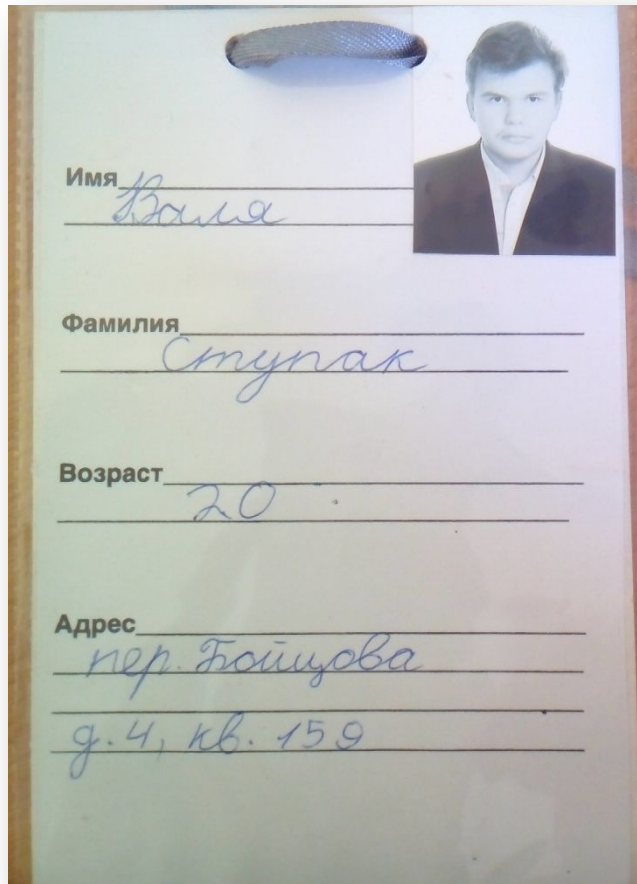 Имя
Валя
Фамилия
Ступак
Возраст
20
Адрес
пер. Бойцова
д. 4, кв. 159